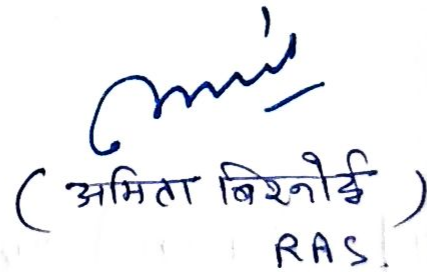 ( अमिता बिश्नोई )
RAS.